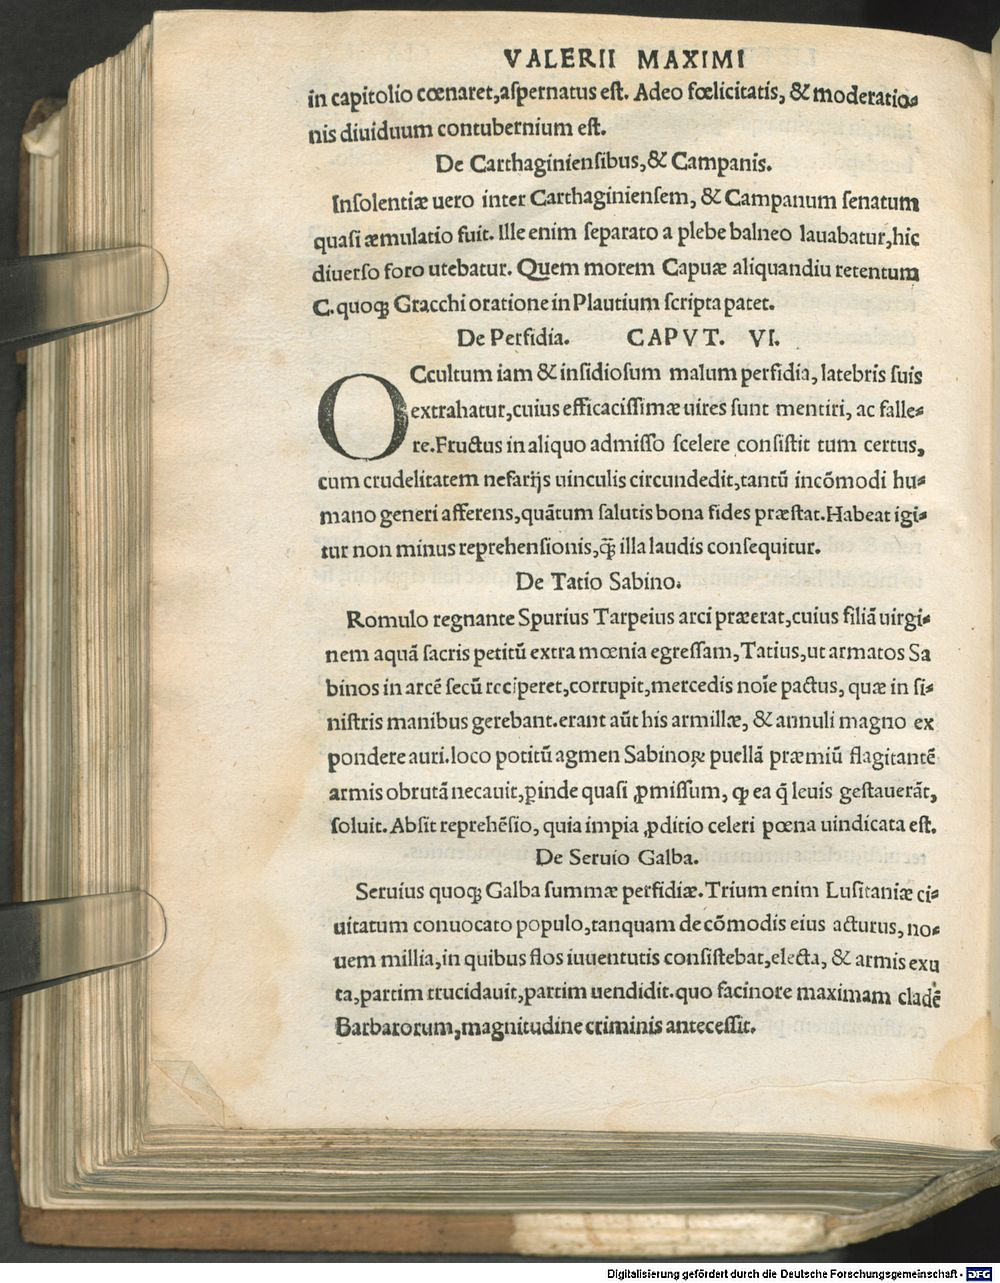 VALERII MAXIMI
in capitolio cœnaret,aſpernatus eſt. Adeo fœlicitatis, & moderatio-
nis diuiduum contubernium eſt.
De Carthaginienſibus,& Campanis.
Inſolentiæ uero inter Carthaginienſem, & Campanum ſenatum
quaſi æmulatio fuit. Ille enim ſeparato a plebe balneo lauabatur,hic
diuerſo foro utebatur. Quem morem Capuæ aliquandiu retentum
C. quoqꝫ Gracchi oratione in Plautium ſcripta patet.
De Perfidia. CAPVT. VI.
OCcultum iam & inſidioſum malum perfidia, latebris ſuis
extrahatur,cuius efficaciſſimæ uires ſunt mentiri, ac falle-
re.Fructus in aliquo admiſſo ſcelere conſiſtit tum certus,
cum crudelitatem nefarijs uinculis circundedit,tantũ incõmodi hu-
mano generi afferens,quãtum ſalutis bona fides præſtat.Habeat igi-
tur non minus reprehenſionis,q̃ꝫ illa laudis conſequitur.
De Tatio Sabino.
Romulo regnante Spurius Tarpeius arci præerat,cuius filiã uirgi-
nem aquã ſacris petitũ extra mœnia egreſſam,Tatius,ut armatos Sa
binos in arcẽ ſecũ reciperet,corrupit,mercedis noĩe pactus, quæ in ſi-
niſtris manibus gerebant.erant aũt his armillæ, & annuli magno ex
pondere auri.loco potitũ agmen Sabinoꝝ puellã præmiũ flagitantẽ
armis obrutã necauit,ꝑinde quaſi ꝓmiſſum, ꝙ ea q̃ leuis geſtauerãt,
ſoluit. Abſit reprehẽſio, quia impia ꝓditio celeri pœna uindicata eſt.
De Seruio Galba.
Seruius quoqꝫ Galba ſummæ perfidiæ. Trium enim Luſitaniæ ci-
uitatum conuocato populo,tanquam de cõmodis eius acturus, no-
uem millia,in quibus flos iuuentutis conſiſtebat,electa, & armis exu
ta,partim trucidauit,partim uendidit.quo facinore maximam cladẽ
Barbarorum,magnitudine criminis anteceſſit.
Digitalisierung gefördert durch die Deutsche Forschungsgemeinschaft - DFG